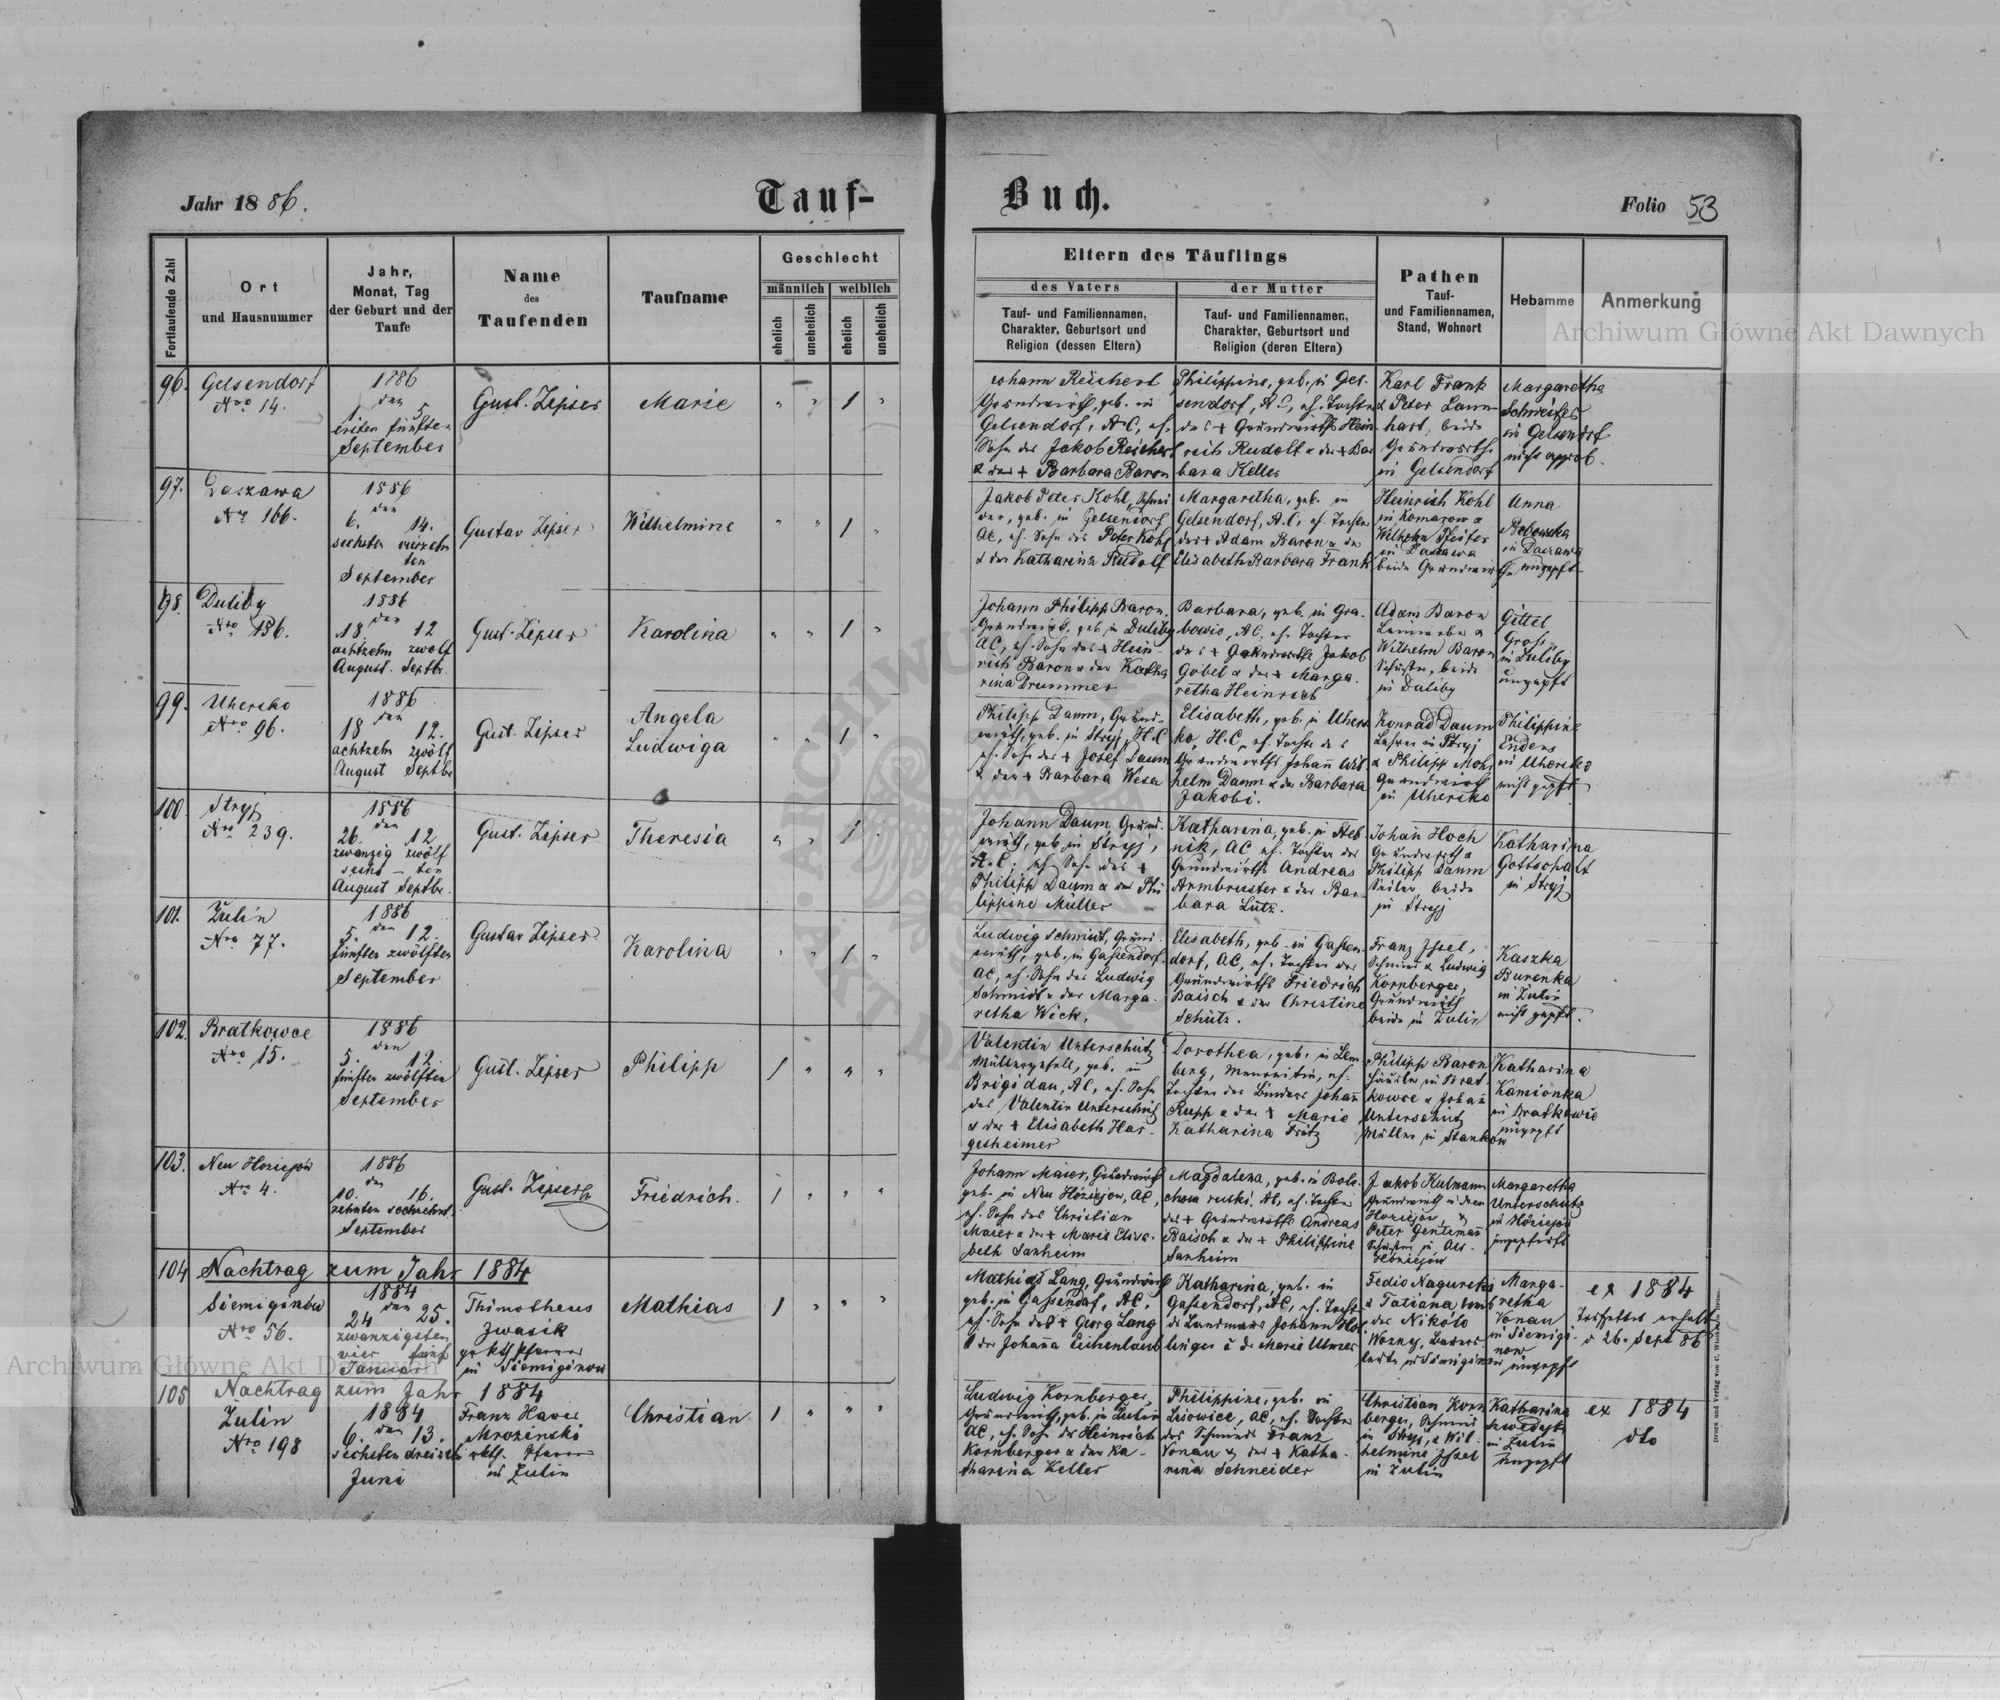 Jahr 1886.
Tauf-
Buch.
Folio 53
Fortlaufende Zahl
Ort
und Hausnummer
Jahr,
Monat, Tag
der Geburt und der
Taufe
Name
des
Taufenden
Taufname
Geschlecht
männlich
weiblich
ehelich
unehelich
ehelich
unehelich
Eltern des Täuflings
des Vaters
Tauf- und Familiennamen,
Charakter, Geburtsort und
Religion (dessen Eltern)
der Mutter
Tauf- und Familiennamen,
Charakter, Geburtsort und
Religion (deren Eltern)
Pathen
Tauf-
und Familiennamen,
Stand, Wohnort
Hebamme
Anmerkung
Archiwum Główne Akt Dawnych
96.
Gelsendorf
Nro 14.
1886
den
1. 5
ersten fünften
September
Gust. Zipser
Marie
" " 1 "
Johann Reichert
Grundwirth, geb. in
Gelsendorf, AC, eh.
Sohn des Jakob Reichert
& der + Barbara Baron
Philippine, geb. in Gel-
sendorf, AC, eh. Tochter
des + Grundwirths Hein
reich Rudolf & der + Bar
bara Keller
Karl Frank
& Peter Lann-
hart, beide
Grundwirthe
in Gelsendorf
Margaretha
Schweitzer
in Gelsendorf
nicht approb.
97.
Daszawa
Nro 166.
1886
den
6. 14.
sechsten vierzehn
ten
September
Gustav Zipser
Wilhelmine
" " 1 "
Jakob Peter Kohl, Schnei
der, geb. in Gelsendorf
AC, eh. Sohn des Peter Kohl
& der Katharina Rudolf
Margaretha, geb. in
Gelsendorf, A.C, eh. Tochter
des + Adam Baron & der
Elisabeth Barbara Frank
Heinrich Kohl
in Komarow &
Wilhelm Pfeifer
in Daszawa
beide Grundwirthe
Anna
in Daszawa
ungepft
98.
Duliby
Nro 136.
1886
den
18 12
achtzehn zwölf
August. Septbr.
Gust. Zipser
Karolina
" " 1 "
Johann Philipp Baron,
Grundwirth, geb. in Duliby
AC, eh. Sohn des + Hein-
rich Baron & der Katha
rina Drummer
Barbara, geb. in Gra-
bowic, AC, eh. Tochter
des + Grundwirths Jakob
Göbel & der + Marga-
retha Heinrich
Adam Baron
Wilhelm Baron
Schuster, beide
in Duliby
Gittel
Gross
in Duliby
ungepft
99.
Uhersko
Nro 96.
1886
den
18 12.
achtzehn zwölf
August Septbr
Gust. Zipser
Angela
Ludwiga
" " 1 "
Philipp Daum, Grund-
wirth, geb. in Stryj, H.C
eh. Sohn des + Josef Daum
& der + Barbara Wesa
Elisabeth, geb. in Uhers
ko, H.C, eh. Tochter des
Grundwirths Johann Wil
helm Daum & der Barbara
Jakobi.
Konrad Daum
Lehrer in Stryj
& Philipp Mohr
Grundwirth
in Uhersko
Philippine
Enders
in Uhersko
nicht gepft
100.
Stryj
Nro 239.
1886
den
26. 12
zwanzig zwölf
sechs - ten
August Septbr.
Gust. Zipser
Theresia
" " 1 "
Johann Daum, Grund-
wirth, geb. in Stryj,
H.C. eh. Sohn des +
Philipp Daum & der Phi
lippine Müller
Katharina, geb. in Steb-
nik, AC eh. Tochter des
Grundwirths Andreas
Armbruster & der Bar-
bara Lutz.
Johann Hoch
Grundwirth &
Philipp Daum
Seiler, beide
in Stryj
Katharina
Gottschalt
in Stryj
101.
Zulin
Nro 77.
1886
5. den 12.
fünften zwölften
September
Gustav Zipser
Karolina
" " 1 "
Ludwig Schmidt, Grund-
wirth, geb. in Gassendorf,
AC, eh. Sohn des Ludwig
Schmidt & der Marga-
retha Wick.
Elisabeth, geb. in Gassen-
dorf, AC, eh. Tochter des
Grundwirths Friedrich
Baisch & der Christine
Schütz.
Franz Issel,
Schmied & Ludwig
Kornberger,
Grundwirth
beide in Zulin
Kaszka
Burenka
in Zulin
nicht gepft.
102.
Bratkowce
Nro 15.
1886
den
5. 12.
fünften zwölften
September
Gust. Zipser
Philipp
1 " " "
Valentin Unterschütz
Müllergesell, geb. in
Brigidau, AC, eh. Sohn
des Valentin Unterschütz
& der + Elisabeth Har-
gesheimer
Dorothea, geb. in Lem-
berg, Mennonitin, eh.
Tochter des Binders Johann
Rupp & der + Maria
Katharina Fritz
Philipp Baron
Häusler in Brat-
kowce & Johann
Unterschütz
Müller in Stankow
Katharina
Kamionka
in Bratkowce
ungepft
103.
Neu Hoziejow
Nro 4.
1886
den
10. 16.
zehnten sechzehnt.
September
Gust. Zipser
Friedrich.
1 " " "
Johann Maier, Grundwirth
geb. in Neu Hoziejow, AC,
eh. Sohn des Christian
Maier & der + Marie Elisa-
beth Sanheim
Magdalena, geb. in Bole-
chow ruski, AC, eh. Tochter
des + Grundwirths Andreas
Baisch & der + Philippine
Sanheim
Jakob Kulmann
Grundwirth in Neu
Hoziejow, &
Peter Gentemann
Schuster in Alt-
Hoziejow
Margaretha
Unterschütz
in Hoziejow
ungeprüft
104
Nachtrag zum Jahr 1884
Siemiginów
Nro 56.
1884
24 den 25.
zwanzigsten
vier fünf
Januar
Thimotheus
Zwasik
gr. kth Pfarrer
in Siemiginow
Mathias
1 " " "
Mathias Lang, Grundwirth
geb. in Gassendorf, AC,
eh. Sohn des + Georg Lang
& der Johanna Eichenlaub
Katharina, geb. in
Gassendorf, AC, eh. Tochter
d. Landmanns Johann Hol
linger & d. Maria Ulmer
Fedio Nagurski
& Tatiana
des Nikolo
Wozny, Bauers-
leute in Siemiginow
Marga-
retha
Vonau
in Siemigi-
now
ungepft
ex 1884
d 26. Sept 86
105
Nachtrag zum Jahr 1884
Zulin
Nro 198
1884
6. den 13.
sechsten dreizehn
Juni
Franz Xaver
Mrozinski
rkth. Pfarrer
in Zulin
Christian
1 " " "
Ludwig Kornberger,
Grundwirth, geb. in Zulin
AC, eh. Sohn des Heinrich
Kornberger & der Ka-
tharina Keller
Philippine, geb. in
Lisowice, AC, eh. Tochter
des Schmieds Franz
Vonau & der + Katha-
rina Schneider
Christian Korn
berger, Schmied
in Stryj, & Wil-
helmine Issel
in Zulin
Katharina
in Zulin
ungepft
ex 1884
dto
Druck und Verlag von C.
Archiwum Główne Akt Dawnych